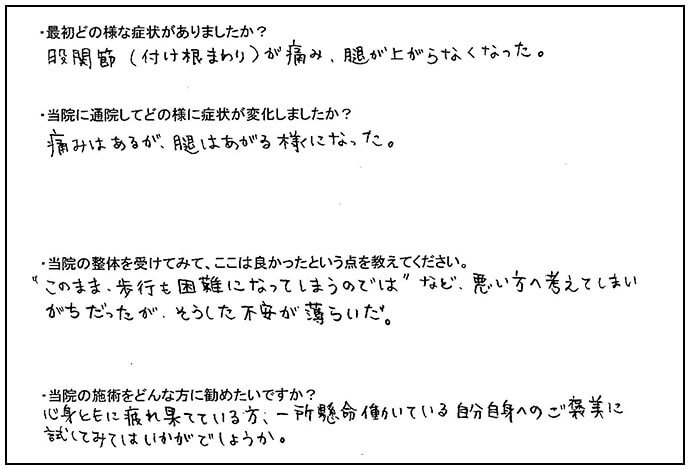 ・最初どの様な症状がありましたか？
股関節（付け根まわり）が痛み、腿が上がらなくなった。
・当院に通院してどの様に症状が変化しましたか？
痛みはあるが、腿はあがる様になった。
・当院の整体を受けてみて、ここは良かったという点を教えてください。
"このまま、歩行も困難になってしまうのでは"など、悪い方へ考えてしまい
がちだったが、そうした不安が薄らいだ。
・当院の施術をどんな方に勧めたいですか？
心身ともに疲れ果てている方、一所懸命働いている自分自身へのご褒美に
試してみてはいかがでしょうか。